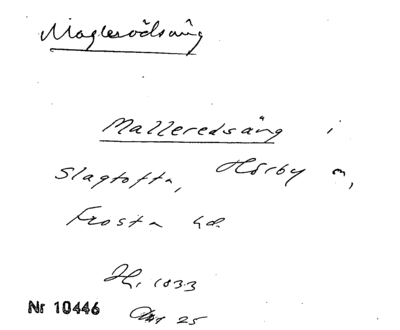 Maglerödsäng
Malleredsäng i
Slagtofta, Hörby sn,
Frosta hd.
1833
Nr 10446
25